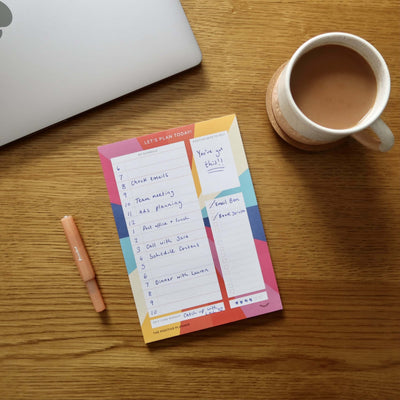 LET'S PLAN TODAY!
You've got
this!!
6
7
8 Check emails
9
10 Team meeting
11 Ads planning
12
1 Post office + lunch
2
3 Call with Sara
4 Schedule Content
5
6
7 Dinner with Lauren
8
9
10
✓ Email Ben
✓ Book
Catch up with
THE POSITIVE PLANNER